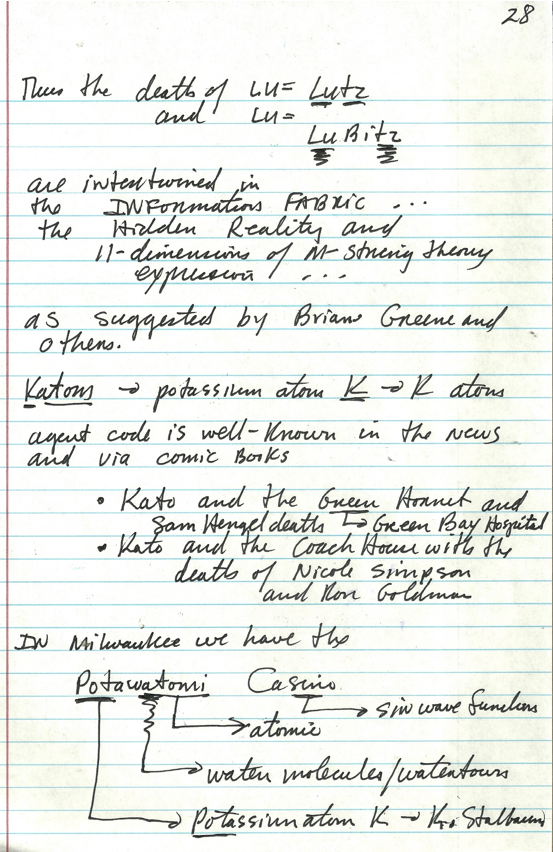 28
Thus the death of LU= Lutz
and LU=
LuBitz
are intertwined in
the INFormation FABRIC ...
the Hidden Reality and
11-dimensions of M-string theory
expression ...
as suggested by Brian Greene and
others.
Katom → potassium atom K → K atom
agent code is well-known in the News
and via comic Books
• Kato and the Green Hornet and
Sam Hengel deaths → Green Bay Hospital
• Kato and the Coach House with the
deaths of Nicole Simpson
and Ron Goldman
IN Milwaukee we have the
Potawatomi Casino
→ sin wave functions
→ atomic
→ water molecules/watertours
→ Potassium atom K → Stalbaum